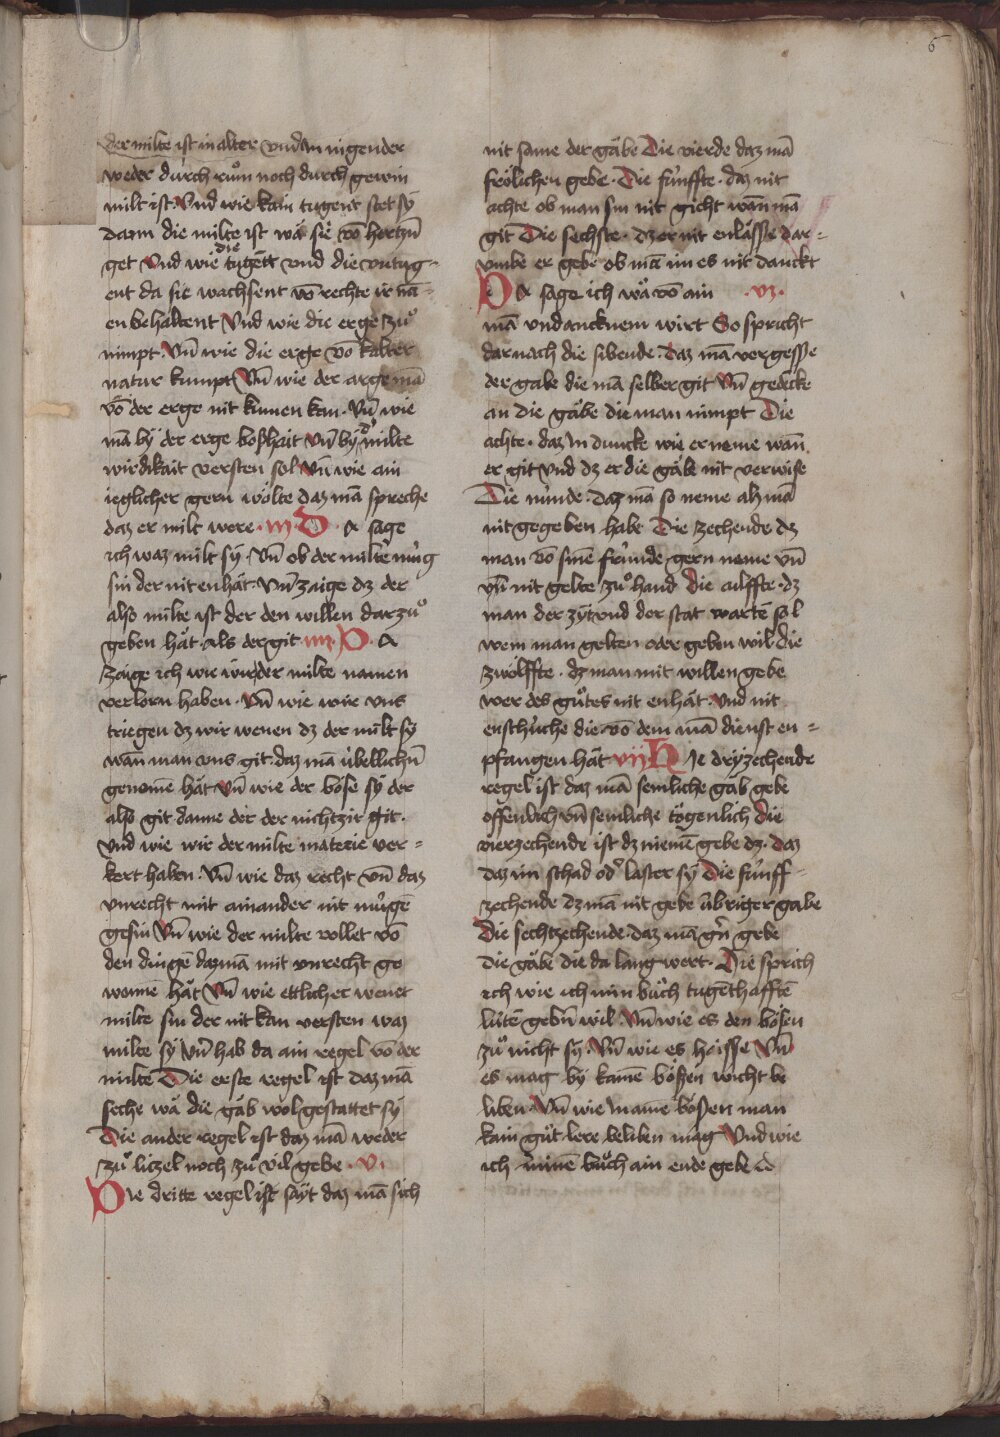 6
der milte ist in alter vnd an nigender
weder durch rům noch durch gewin
milt ist. Vnd wie kain tugent stet sÿ
darin die milte ist wa sie vō hertzn̄
die
get Vnd wie tugētt vnd die vntug-
ent da sie wachsent vō rechte ir nā-
en behaltent Vnd wie die erge zů
nimpt. Vn̄ wie die erge vō kalter
natur kumpt Vn̄ wie der arge mā
vō der erge nit kumen kan. Vn̄ wie
mā bÿ der erge boßhait Vn̄ bÿ d' milte
wirdikait versten sol Vn̄ wie ain
ieglicher gern wölte daz mā spreche
daz er milt were. iii. D a sage
ich waz milt sÿ. Vn̄ ob der milte mùg
sin der nit enhät. Vn̄ zaige dz der
also milte ist der den willen darzů
geben hät als der git iiii. D a
zaige ich wie wir der milte namen
verlorn haben. Vn̄ wie wir vns
triegen dz wir wenen dz der milt sÿ
wān man vns git. daz mā ùbellichn̄
genomē hät Vn̄ wie der böse sÿ der
also git danne der der nichtzit git.
Vnd wie wir der milte materie ver-
kert haben. Vn̄ wie daz recht vn̄ daz
vnrecht mit ainander nit mùgē
gesin Vn̄ wie der milte wllet vō
den dingē daz mā mit vnrecht ge
wonnē hät Vn̄ wie ettlicher wenet
milte sin der nit kan versten waz
milte sÿ Vn̄ hab da ain regel vō der
milte Die erste regel ist daz mā
seche wä die gäb wol gestattet sÿ
Die ander regel ist daz mā weder
zů litzel noch zů vil gebe. v.
Die dritte regel ist säÿt daz mā sich
nit same der gäbe Die vierde daz mā
frölichen gebe. Die fùnffte. daz nit
achte ob man sin nit gicht wān mā
git Die sechste. dz er nit enlässe dar-
vmbe er gebe ob mā im es nit danckt
Da sage ich wä vō ain .vi.
mā vndancknem wirt So spricht
darnach die sibende. daz mā vergesse
der gabe die mā selber git Vn̄ gedecke
an die gäbe die man nimpt Die
achte. daz in duncke wie er neme wān
er git vnd dz er die gäbe nit verwise
Die nùnde. daz mā so neme alz mā
nit gegeben habe Die zechende dz
man vō sinē frùnde gern neme vn̄
vn̄ nit gelte zů hand die ailffte. dz
man der zÿt vnd der stat wartē sol
wem man gelten oder geben wil die
zwölffte. dz man mit willen gebe
wer des gůtes nit enhät. Vnd nit
enschùche die vō dem mā dienst en-
pfangen hät vii Die drÿzechende
regel ist daz mā semliche gäb gebe
offenlich vn̄ semliche tögenlich die
vierzechende ist dz niemē gebe dz. daz
daz im schad od' laster sÿ Die fùnff-
zechende dz mā nit gebe ùbriger gabe
Die sechtzechende. daz mā gn̄ gebe
die gäbe die da lang wert. Die sprich
ich wie ich min bůch tugēthafftē
lùtē gebn̄ wil. Vn̄ wie es den bösen
zů nicht sÿ. Vn̄ wie es haisse Vn̄
es mag bÿ kainē bößen nicht be
liben Vn̄ wie in ainē bößen man
kain gůt lere beliben mag Vnd wie
ich minē bůch ain ende gebe